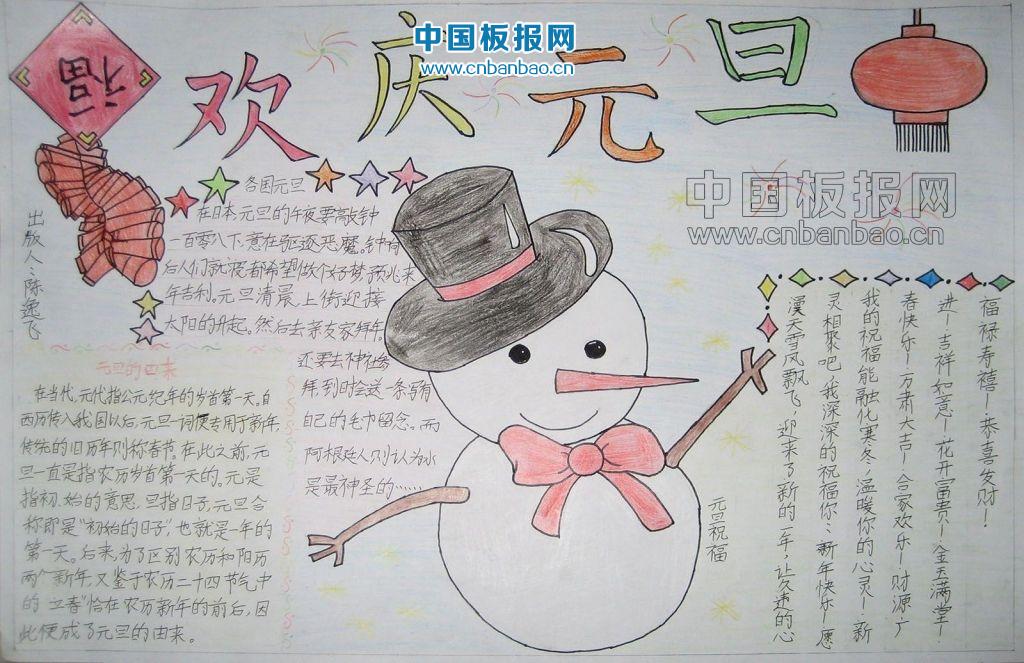 中国板报网
www.cnbanbao.cn
福
欢庆元旦
中国板报网
www.cnbanbao.cn
出版人:陈逸飞
各国元旦
在日本元旦的午夜要敲钟
一百零八下,意在驱逐恶魔。钟响
后人们就说都希望做个好梦,预兆来
年吉利。元旦清晨,上街迎接
太阳的升起。然后去亲友家拜年。
还要去神社参
拜,到时会送一条写有
自己的毛巾留念。而
阿根廷人则认为水
是最神圣的……
元旦的由来
在当代,元代指公元纪年的岁首第一天。自
西历传入我国以后,元旦一词便专用于新年,
传统的旧历年则称春节。在此之前,元
旦一直是指农历岁首第一天的。元是
指初、始的意思,旦指日子,元旦合
称即是“初始的日子”,也就是一年的
第一天。后来,为了区别农历和阳历
两个新年,又鉴于农历二十四节气中
的“立春”恰在农历新年的前后,因
此便成了元旦的由来。
福禄寿禧!恭喜发财!
进!吉祥如意!花开富贵!金玉满堂!
春快乐!万肃大吉!合家欢乐!财源广
我的祝福能融化寒冬,温暖你的心灵!新
灵相聚吧,我深深的祝福你:新年快乐!愿
漫天雪风飘飞,迎来了新的一年,让久违的心
元旦祝福